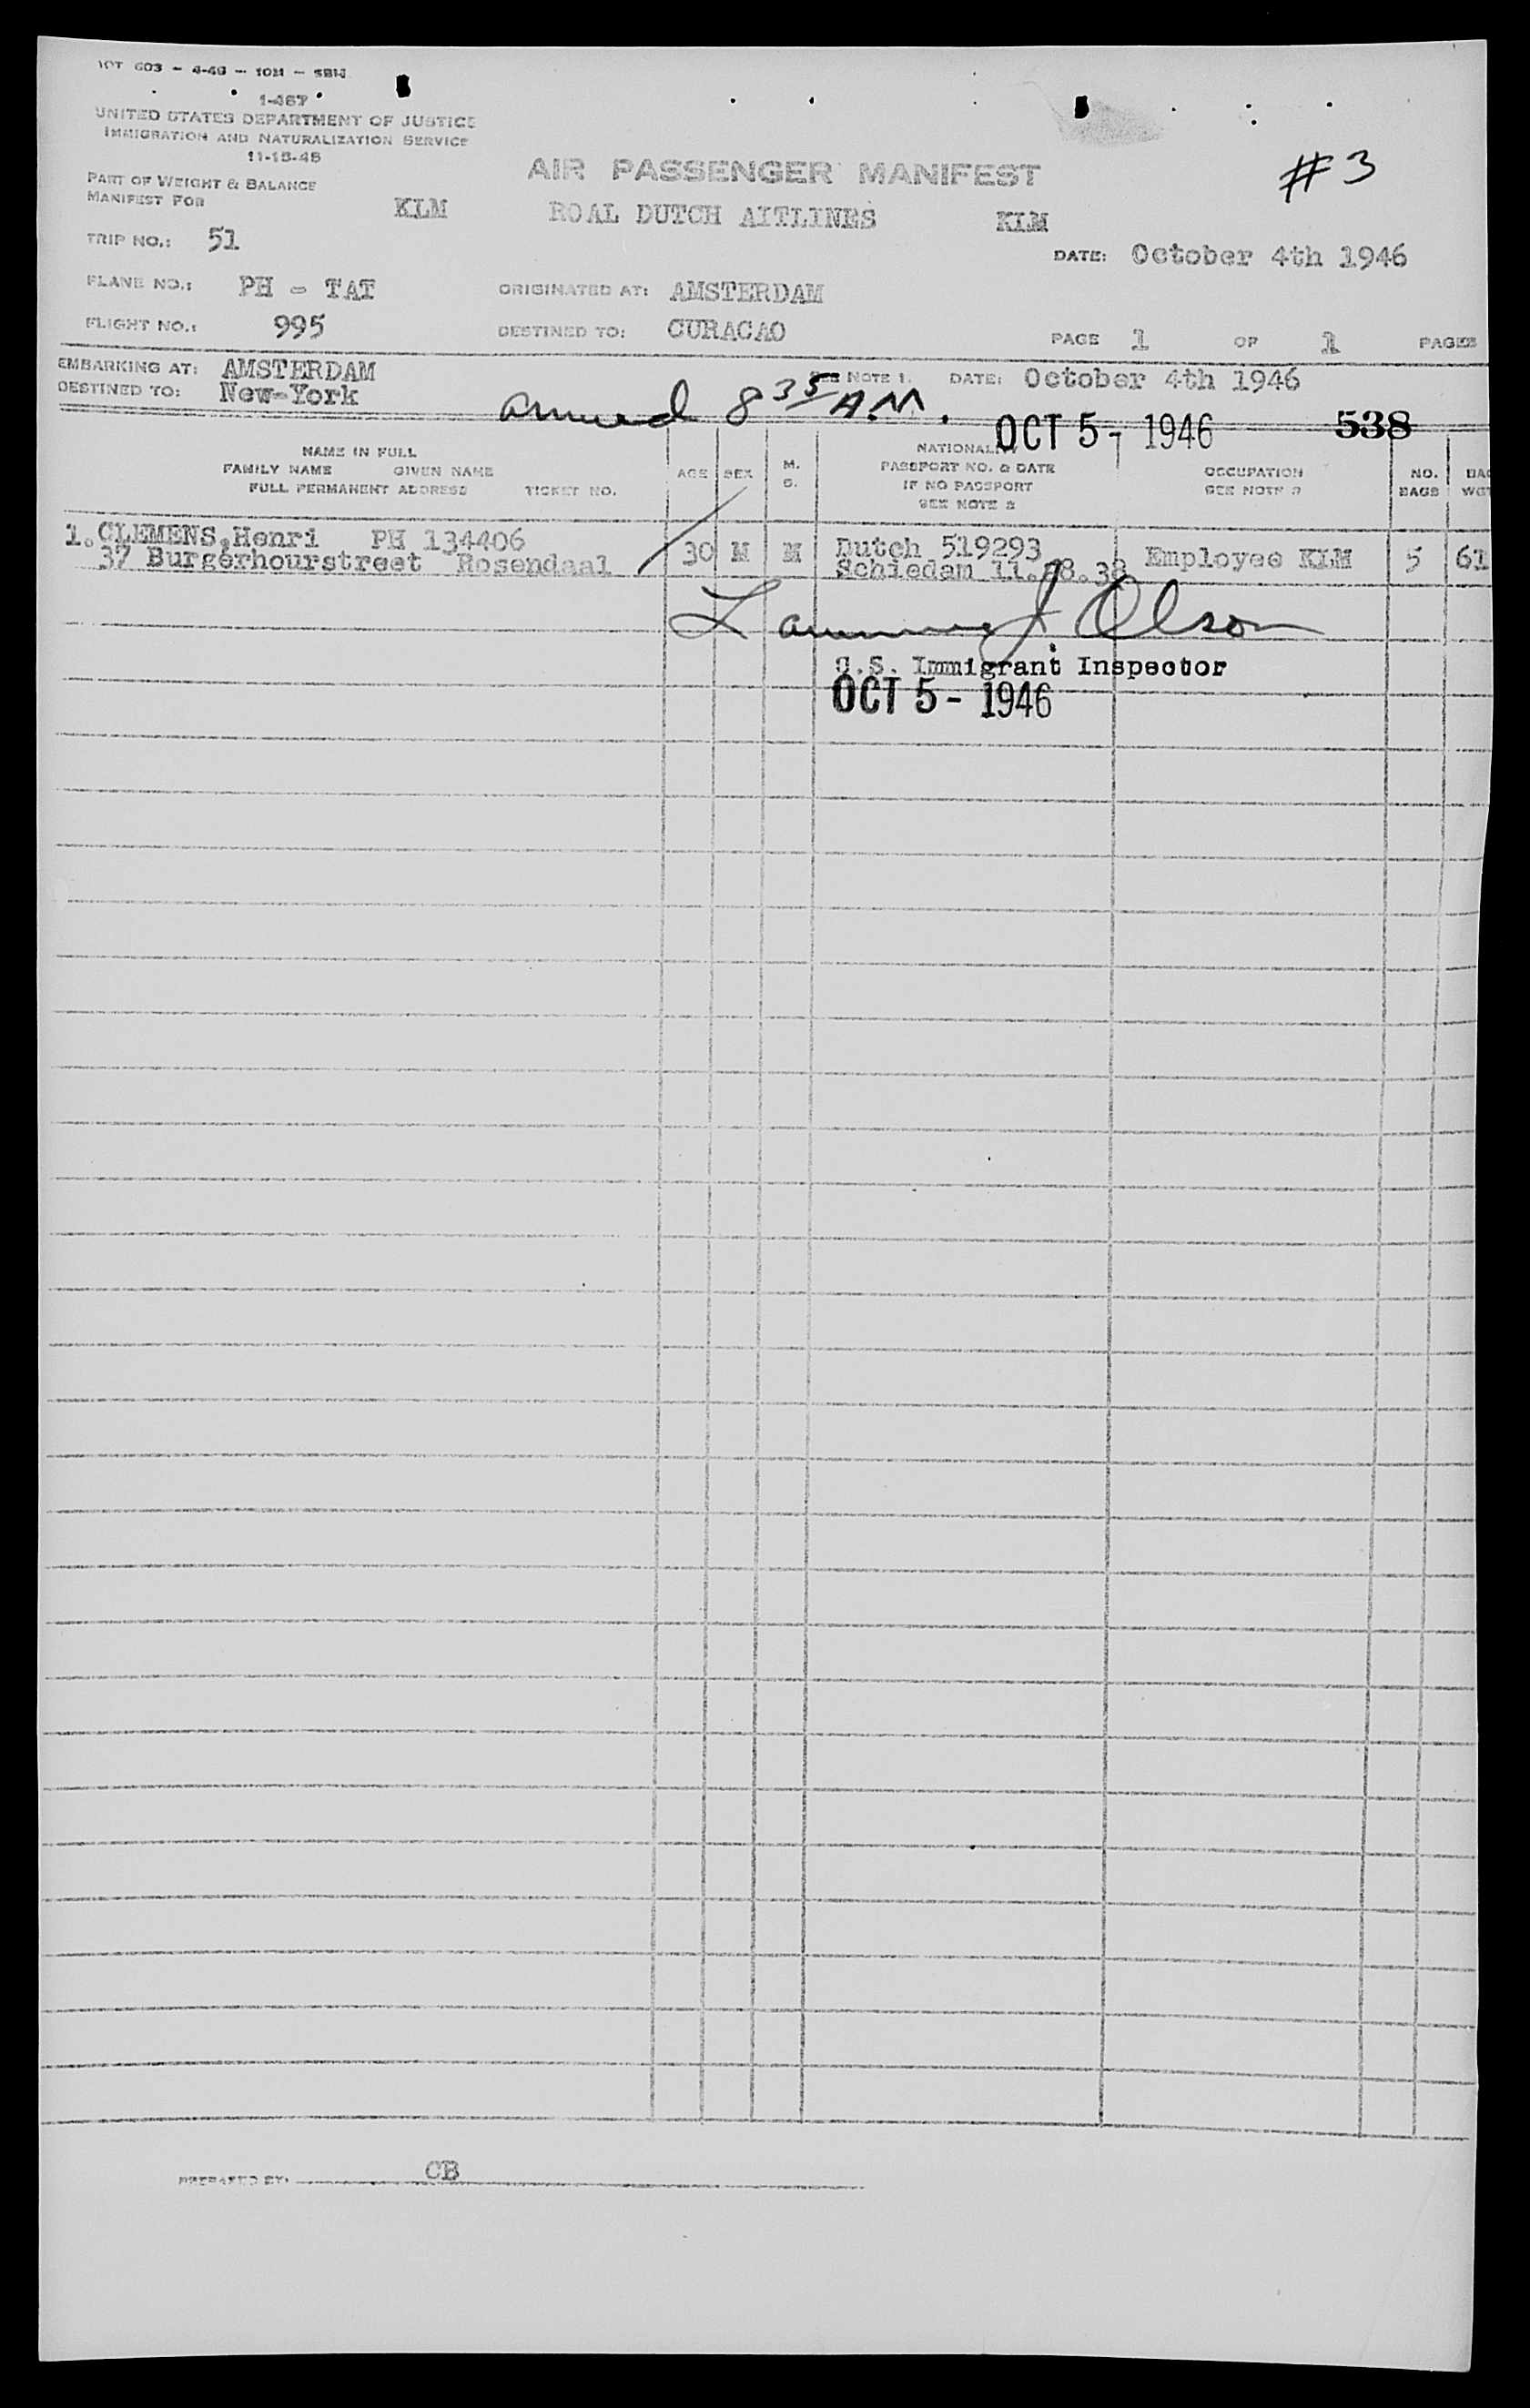 603 - 4-46 - 10M -
1-467
UNITED STATES DEPARTMENT OF JUSTICE
IMMIGRATION AND NATURALIZATION SERVICE
11-15-45
PART OF WEIGHT & BALANCE
MANIFEST FOR
AIR PASSENGER MANIFEST
#3
KLM ROAL DUTCH AITLINES KLM
TRIP NO.: 51
DATE: October 4th 1946
PLANE NO.: PH - TAT ORIGINATED AT: AMSTERDAM
FLIGHT NO.: 995 DESTINED TO: CURACAO PAGE 1 OF 1 PAGES
EMBARKING AT: AMSTERDAM SEE NOTE 1. DATE: October 4th 1946
DESTINED TO: New-York
arrived 8 35 A.M. OCT 5 - 1946 538
NAME IN FULL
FAMILY NAME GIVEN NAME
FULL PERMANENT ADDRESS TICKET NO.
AGE SEX M.
S.
NATIONALITY
PASSPORT NO. & DATE
IF NO PASSPORT
SEE NOTE 2
OCCUPATION
SEE NOTE
NO.
BAGS
BAG
WGT
1. CLEMENS, Henri PH 134406 30 M M Dutch 519293 Employee KLM 5 61
37 Burgerhourstreet Rosendaal Schiedam 11.28.38
J. Olson
U.S. Immigrant Inspector
OCT 5 - 1946
PREPARED BY. CB